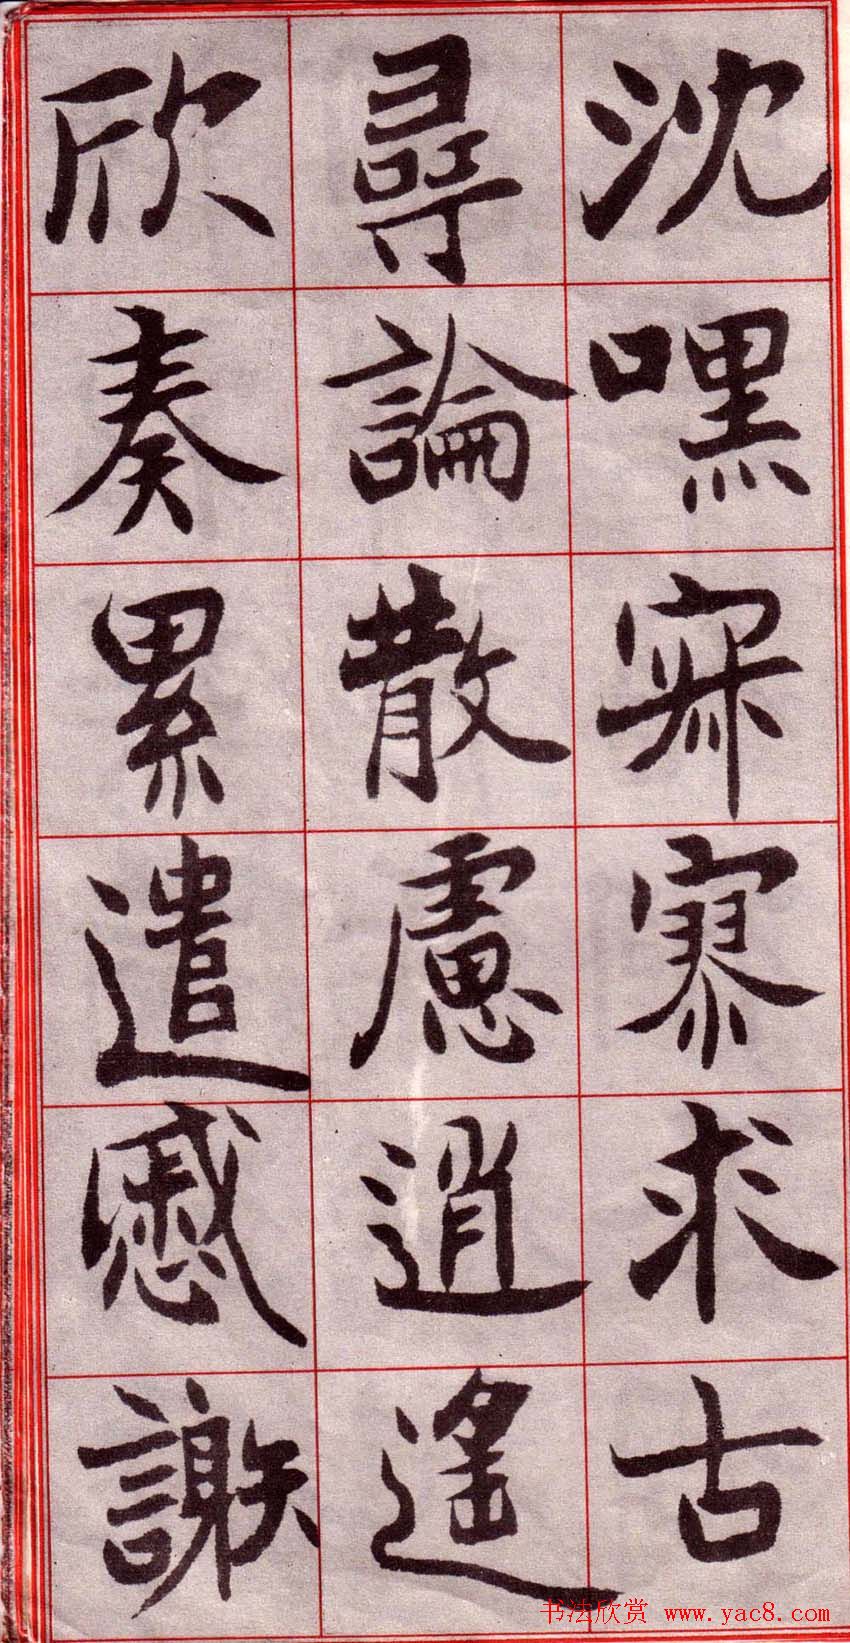 沈嘿寂寥求古
尋論散慮逍遙
欣奏累遣慼謝
书法欣赏 www.yac8.com